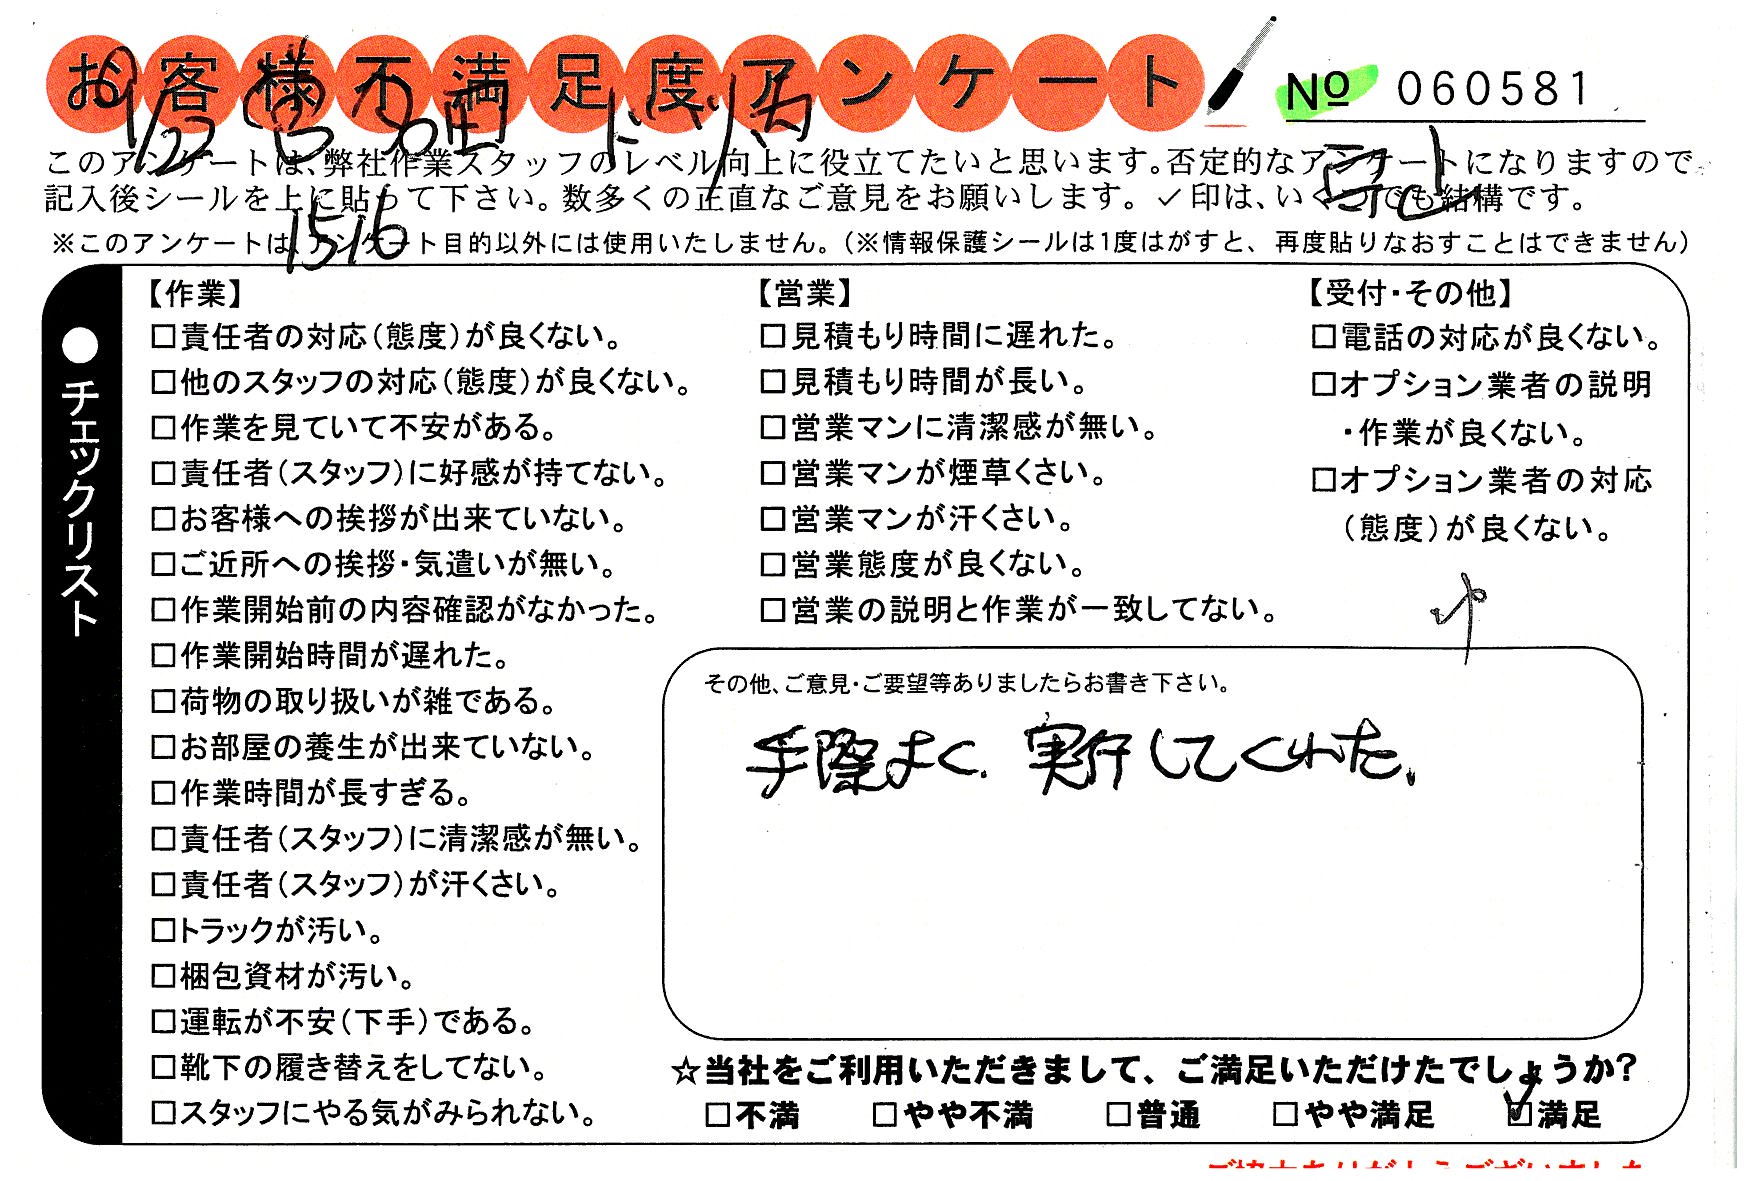 お客様不満足度アンケート
№ 060581
9/22
1516
このアンケートは、弊社作業スタッフのレベル向上に役立てたいと思います。否定的なアンケートになりますので
記入後シールを上に貼って下さい。数多くの正直なご意見をお願いします。✓印は、いくつでも結構です。
※このアンケートは、アンケート目的以外には使用いたしません。(※情報保護シールは1度はがすと、再度貼りなおすことはできません)
●チェックリスト
【作業】
□責任者の対応(態度)が良くない。
□他のスタッフの対応(態度)が良くない。
□作業を見ていて不安がある。
□責任者(スタッフ)に好感が持てない。
□お客様への挨拶が出来ていない。
□ご近所への挨拶・気遣いが無い。
□作業開始前の内容確認がなかった。
□作業開始時間が遅れた。
□荷物の取り扱いが雑である。
□お部屋の養生が出来ていない。
□作業時間が長すぎる。
□責任者(スタッフ)に清潔感が無い。
□責任者(スタッフ)が汗くさい。
□トラックが汚い。
□梱包資材が汚い。
□運転が不安(下手)である。
□靴下の履き替えをしてない。
□スタッフにやる気がみられない。
【営業】
□見積もり時間に遅れた。
□見積もり時間が長い。
□営業マンに清潔感が無い。
□営業マンが煙草くさい。
□営業マンが汗くさい。
□営業態度が良くない。
□営業の説明と作業が一致してない。
【受付・その他】
□電話の対応が良くない。
□オプション業者の説明
・作業が良くない。
□オプション業者の対応
(態度)が良くない。
その他、ご意見・ご要望等ありましたらお書き下さい。
手際よく、実行してくれた。
☆当社をご利用いただきまして、ご満足いただけたでしょうか?
□不満 □やや不満 □普通 □やや満足 ☑満足
ご協力ありがとうございました